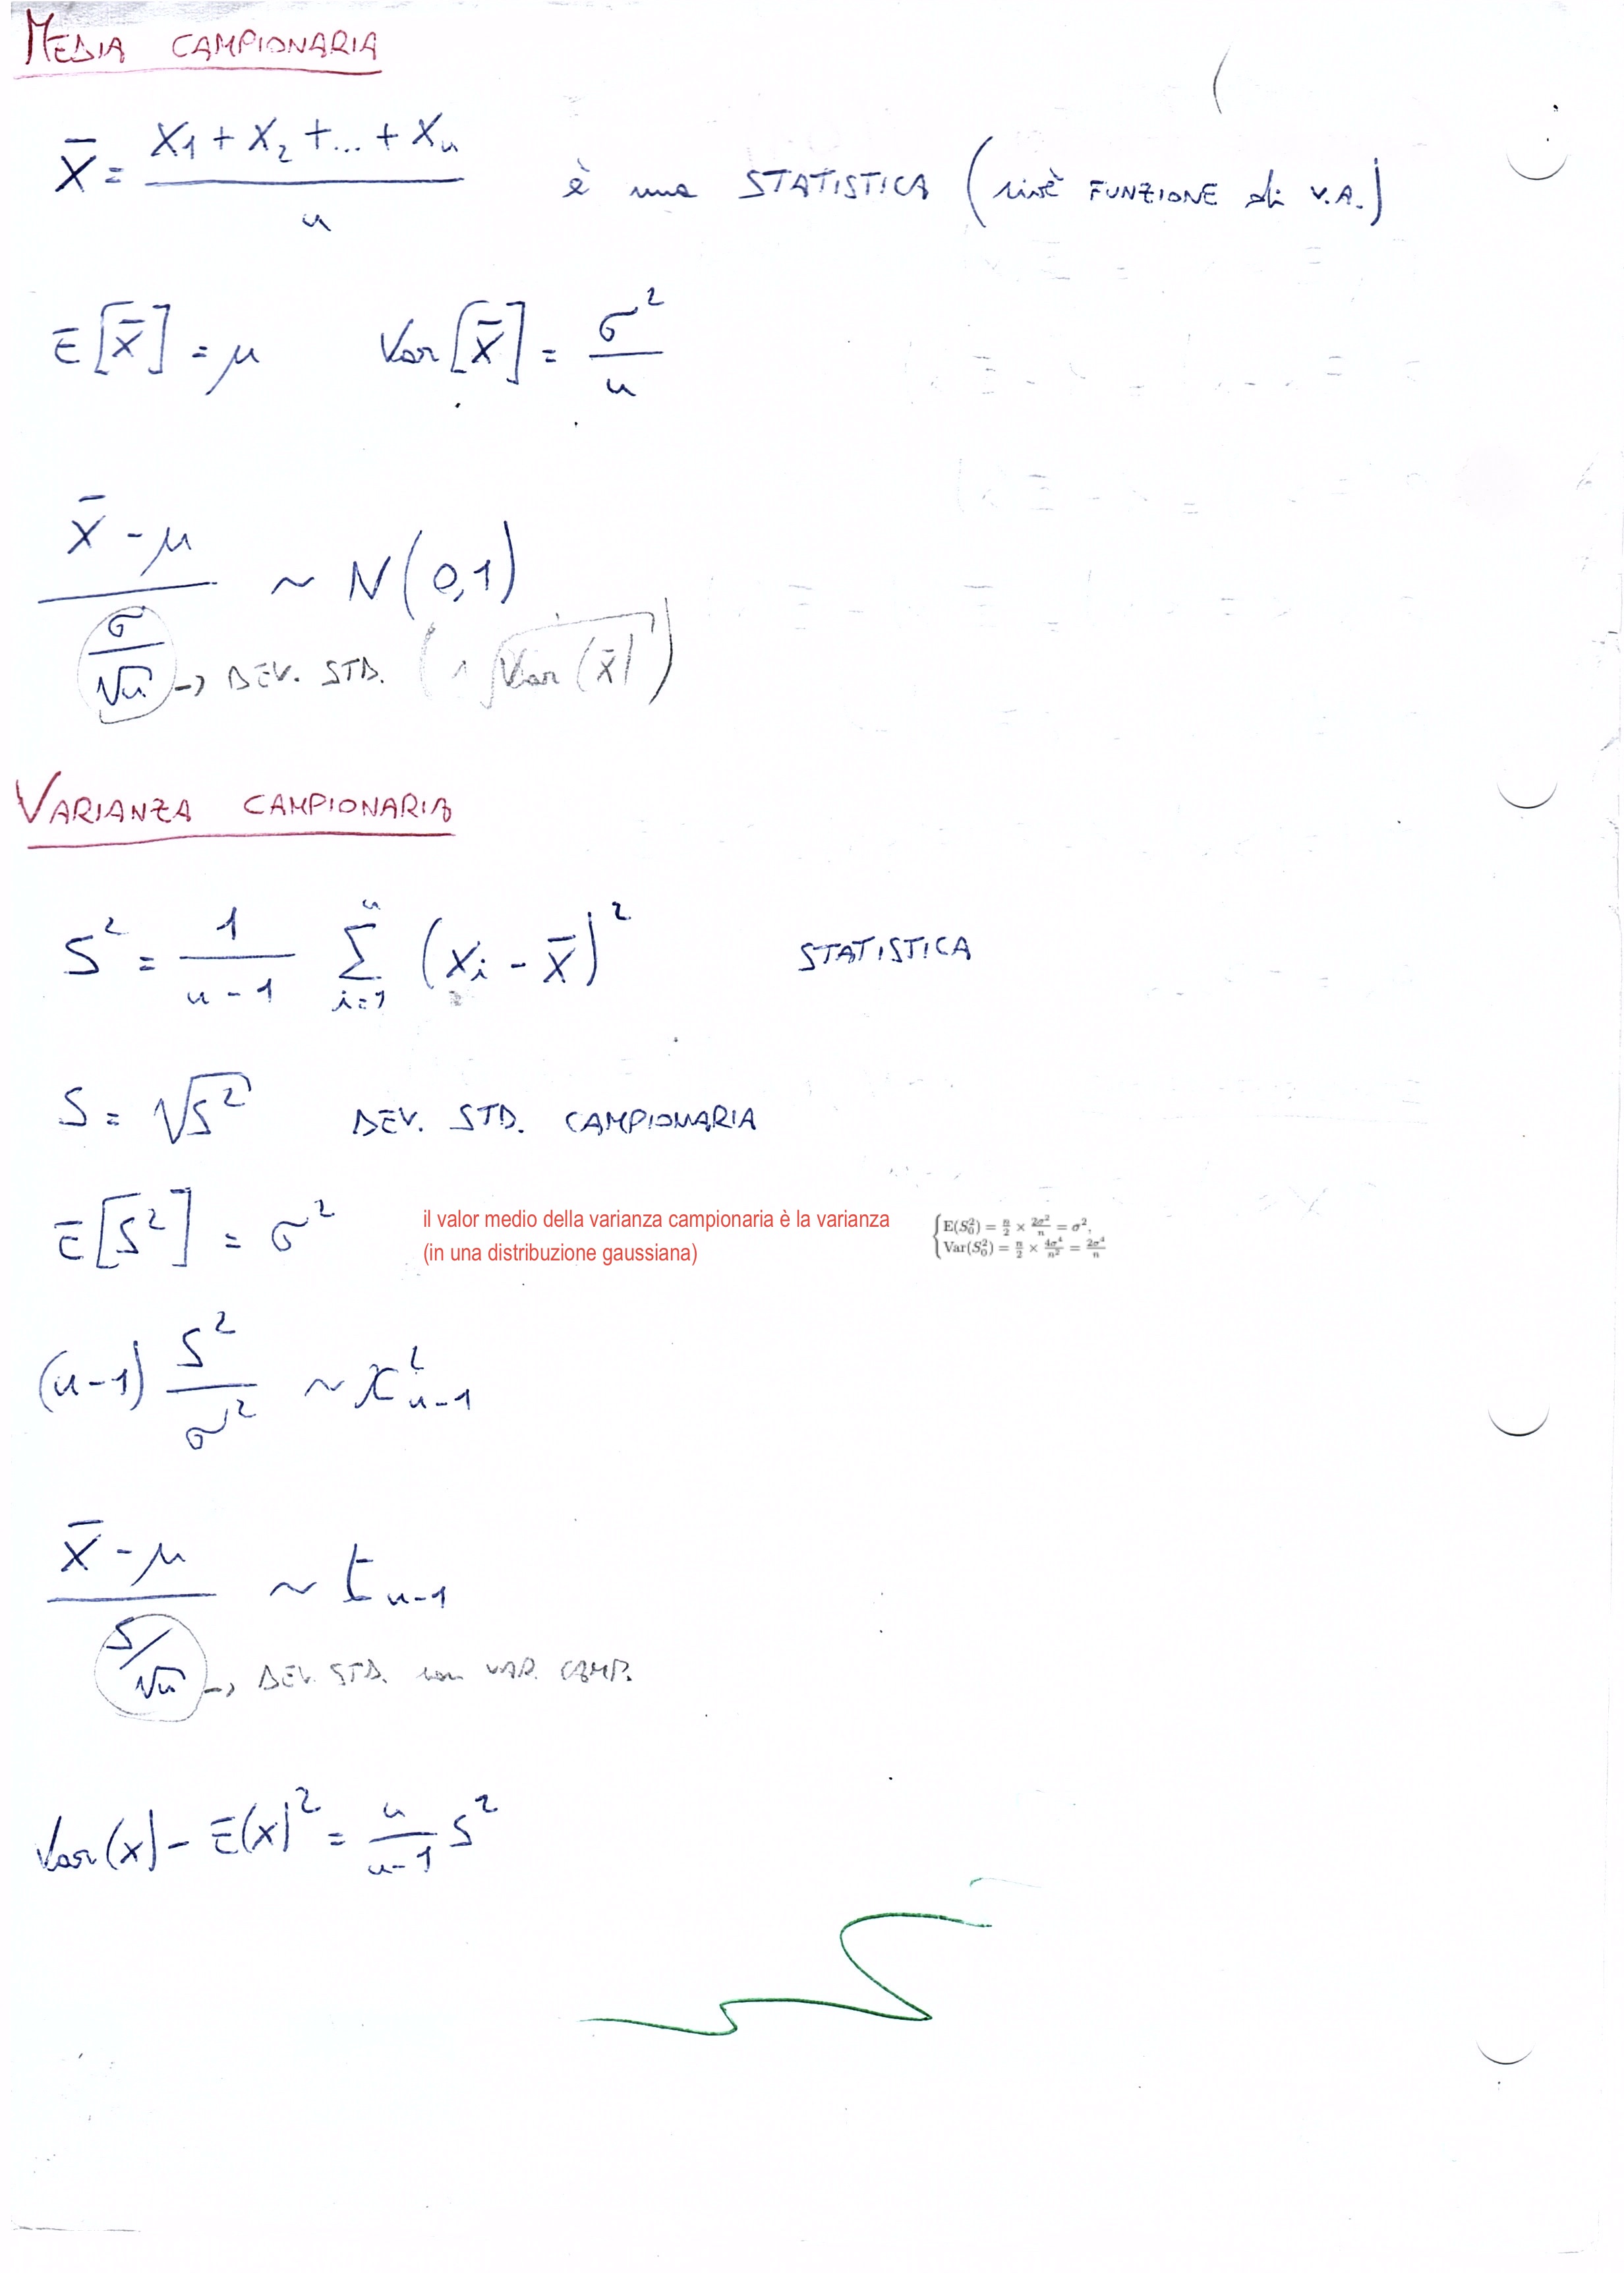 MEDIA CAMPIONARIA
X̄ = (X₁ + X₂ + ... + Xₙ) / n è una STATISTICA (cioè FUNZIONE di V.A.)
E[X̄] = μ Var[X̄] = σ² / n
(X̄ - μ) / (σ / √n) ~ N(0,1)
→ DEV. STD. (√Var(X̄))
VARIANZA CAMPIONARIA
S² = 1 / (n-1) Σᵢ₌₁ⁿ (Xᵢ - X̄)² STATISTICA
S = √S² DEV. STD. CAMPIONARIA
E[S²] = σ²
il valor medio della varianza campionaria è la varianza
(in una distribuzione gaussiana)
{ E(S₀²) = n/2 × 2σ²/n = σ²,
Var(S₀²) = n/2 × 4σ⁴/n² = 2σ⁴/n
(n-1) S² / σ² ~ χ²ₙ₋₁
(X̄ - μ) / (S/√n) ~ tₙ₋₁
→ DEV. STD. con VAR. CAMP.
Var(x) - E(x)² = n / (n-1) S²